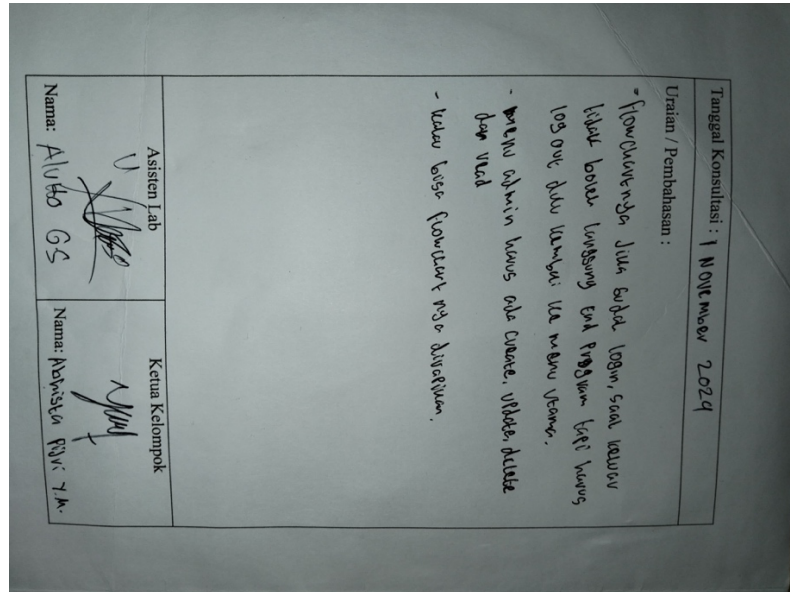 Tanggal Konsultasi : 1 November 2024
Uraian / Pembahasan :
- flowchartnya jika sudah login, saat keluar
tidak boleh langsung end program tapi harus
log out dulu kembali ke menu utama.
- menu admin harus ada create, update, delete
dan read
- kalau bisa flowchart nya dirapikan.
Asisten Lab
Ketua Kelompok
Nama: GS
Nama: Abhista Y.M.